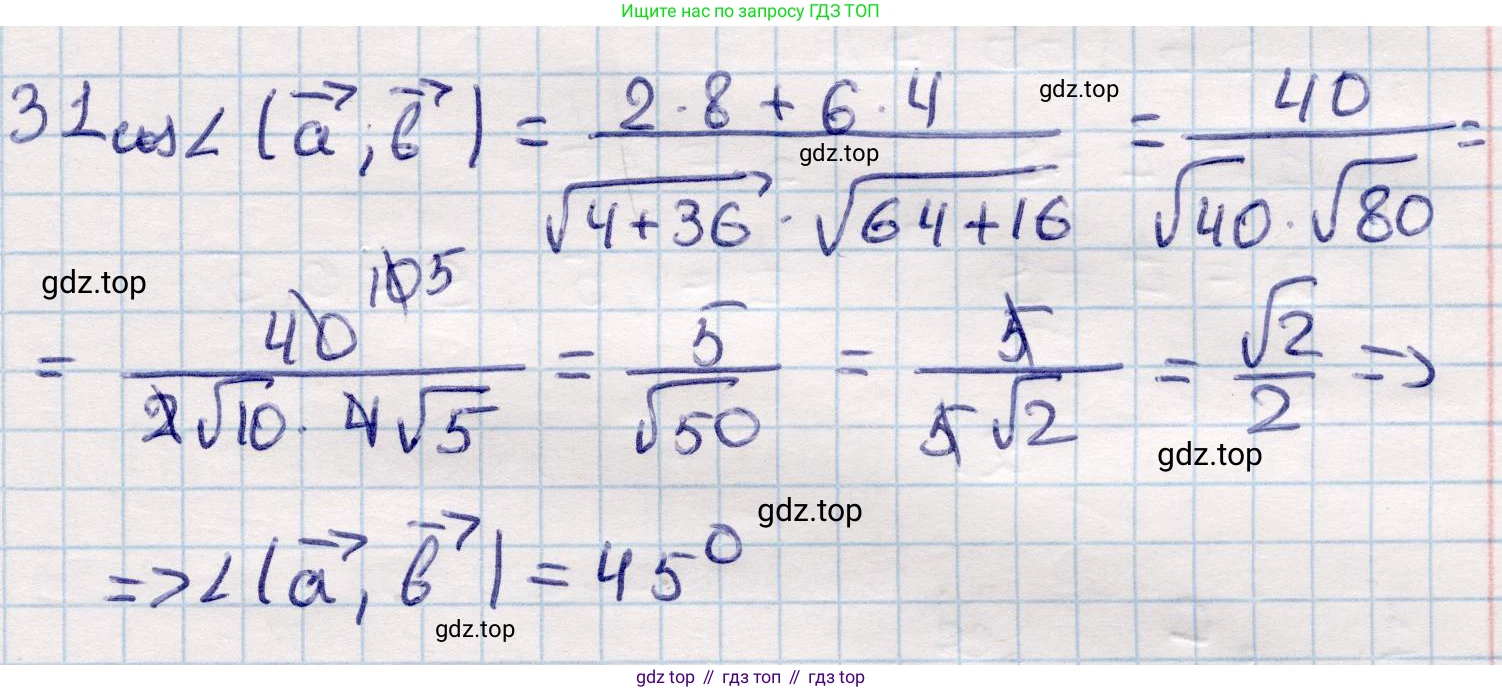 Ищите нас по запросу ГДЗ ТОП
31 cos∠(a⃗; b⃗) = (2·8 + 6·4)/(√(4+36) · √(64+16)) = 40/(√40 · √80) =
gdz.top
gdz.top
gdz.top
= 40 10 5/(2√10 · 4√5) = 5/√50 = 5/(5√2) = √2/2 =>
gdz.top
gdz.top
=> ∠(a⃗; b⃗) = 45⁰
gdz.top
gdz.top // гдз топ // гдз top